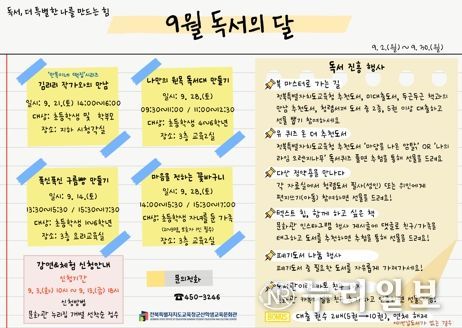 독서, 더 특별한 나를 만드는 힘
9월 독서의 달
9. 2.(월) ~ 9. 30.(월)
김리리 작가와의 만남
일시: 9. 21.(토) 14:00~16:00
대상: 초등학생 및 학부모
장소: 지하 시청각실
나만의 원목 독서대 만들기
일시: 9. 28.(토)
09:30~11:00 / 11:00~12:30
대상: 초등학생 4~6학년
장소: 3층 교육2실
폭신폭신 구름빵 만들기
일시: 9. 14.(토)
13:30~15:30 / 15:30~17:30
대상: 초등학생 1~6학년
장소: 3층 요리교육실
마음을 전하는 꽃바구니
일시: 9. 28.(토)
14:00~15:30 / 15:30~17:00
대상: 초등학생 자녀를 둔 가족
장소: 3층 교육2실
강연&체험 신청안내
신청기간
9. 3.(화) 10시 ~ 9. 13.(금) 18시
신청방법
문화관 누리집 개별 선착순 접수
문의전화
☎450-3246
전북특별자치도교육청군산학생교육문화관
독서 진흥 행사
북 마스터로 가는 길
전북특별자치도교육청 추천도서, 이대출도서, 두근두근 책과의
만남 추천도서, 청렴서재 도서 중 2종, 5권 이상 대출하고
선물 뽑기 참여하세요
유 퀴즈 온 더 추천도서
전북특별자치도교육청 추천도서 '마당을 나온 암탉' OR '나의
라임 오렌지나무' 독서퀴즈 풀면 추첨을 통해 선물을 드려요
다산 정약용을 만나다
각 자료실에서 청렴도서 필사(성인) 또는 위인에게
편지쓰기(아동) 참여하면 추첨을 통해 선물을 드려요
텍스트 힙, 함께 하고 싶은 책
문화관 인스타그램 행사 게시물에 댓글로 친구/가족을
태그하고 도서를 추천하면 추첨을 통해 선물을 드려요
폐기도서 나눔
폐기도서 중 필요한 도서를 자유롭게 가져가세요!
BONUS 대출 권수 2배(5권→10권), 연체 해제
누리일보